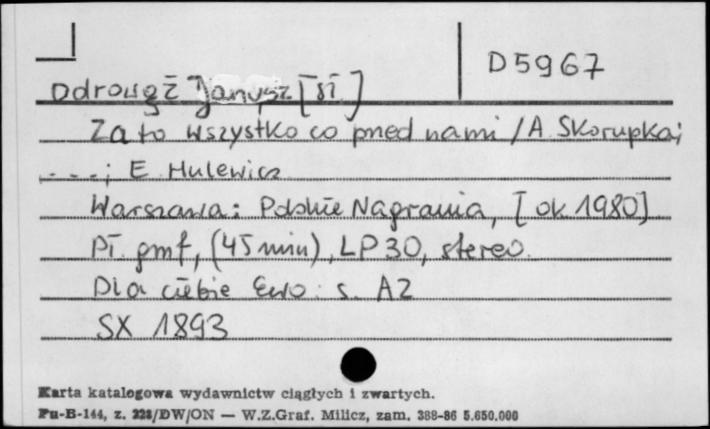 D5967
Odrowąż Janusz [sł.]
Za to wszystko co przed nami / A. Skorupka;
...; E. Hulewicz
Warszawa: Polskie Nagrania, [ok. 1980]
Pł. gmf, (45 min), LP 30, stereo.
Dla ciebie Ewo: s. A2
SX 1893
Karta katalogowa wydawnictw ciągłych i zwartych.
Pu-B-144, z. 228/DW/ON — W.Z.Graf. Milicz, zam. 388-86 5.650.000